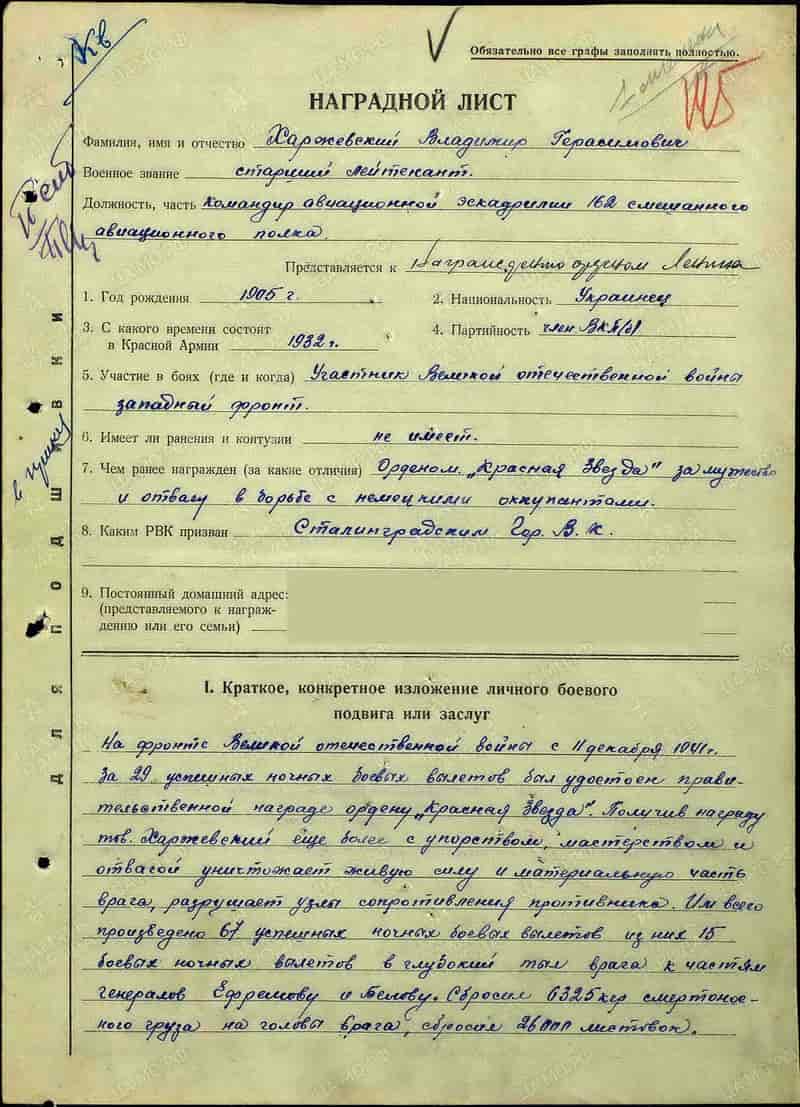 Кв
Обязательно все графы заполнять полностью.
145
НАГРАДНОЙ ЛИСТ
Фамилия, имя и отчество Харжевский Владимир Герасимович
Военное звание старший лейтенант.
Должность, часть Командир авиационной эскадрилии 162 смешанного
авиационного полка.
Представляется к награждению орденом Ленина
1. Год рождения 1905 г. 2. Национальность Украинец
3. С какого времени состоит
в Красной Армии 1932 г. 4. Партийность член ВКП(б)
5. Участие в боях (где и когда) Участник Великой отечественной войны
западный фронт.
6. Имеет ли ранения и контузии не имеет.
7. Чем ранее награжден (за какие отличия) Орденом „Красная Звезда" за мужество
и отвагу в борьбе с немецкими оккупантами.
8. Каким РВК призван Сталинградским Гор. В. К.
9. Постоянный домашний адрес:
(представляемого к награж-
дению или его семьи)
Для подшивки
I. Краткое, конкретное изложение личного боевого
подвига или заслуг
На фронте Великой отечественной войны с 11 декабря 1941 г.
За 29 успешных ночных боевых вылетов был удостоен прави-
тельственной награде ордену „Красная Звезда". Получив награду
тов. Харжевский еще более с упорством, мастерством и
отвагой уничтожает живую силу и материальную часть
врага, разрушает узлы сопротивления противника. Им всего
произведено 67 успешных ночных боевых вылетов из них 15
боевых ночных вылетов в глубокий тыл врага к частям
генералов Ефремову и Белову. Сбросил 6325 кгр смертонос-
ного груза на головы врага, сбросил 26000 листовок.